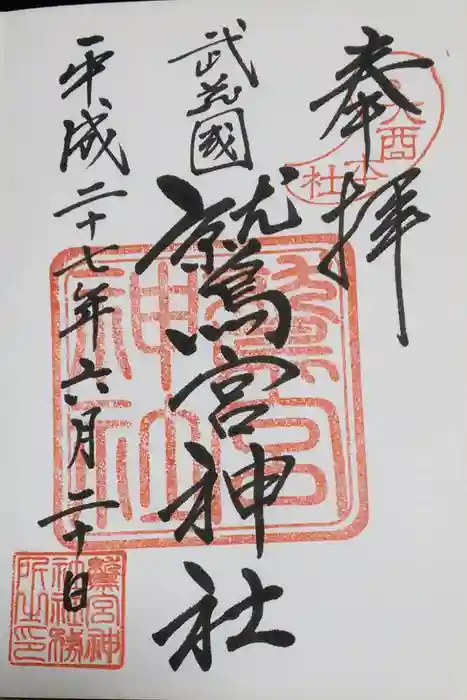 奉拝
武蔵國
鷲宮神社
平成二十七年六月二十日
鷲宮神社
鷲宮神
社務
所之印